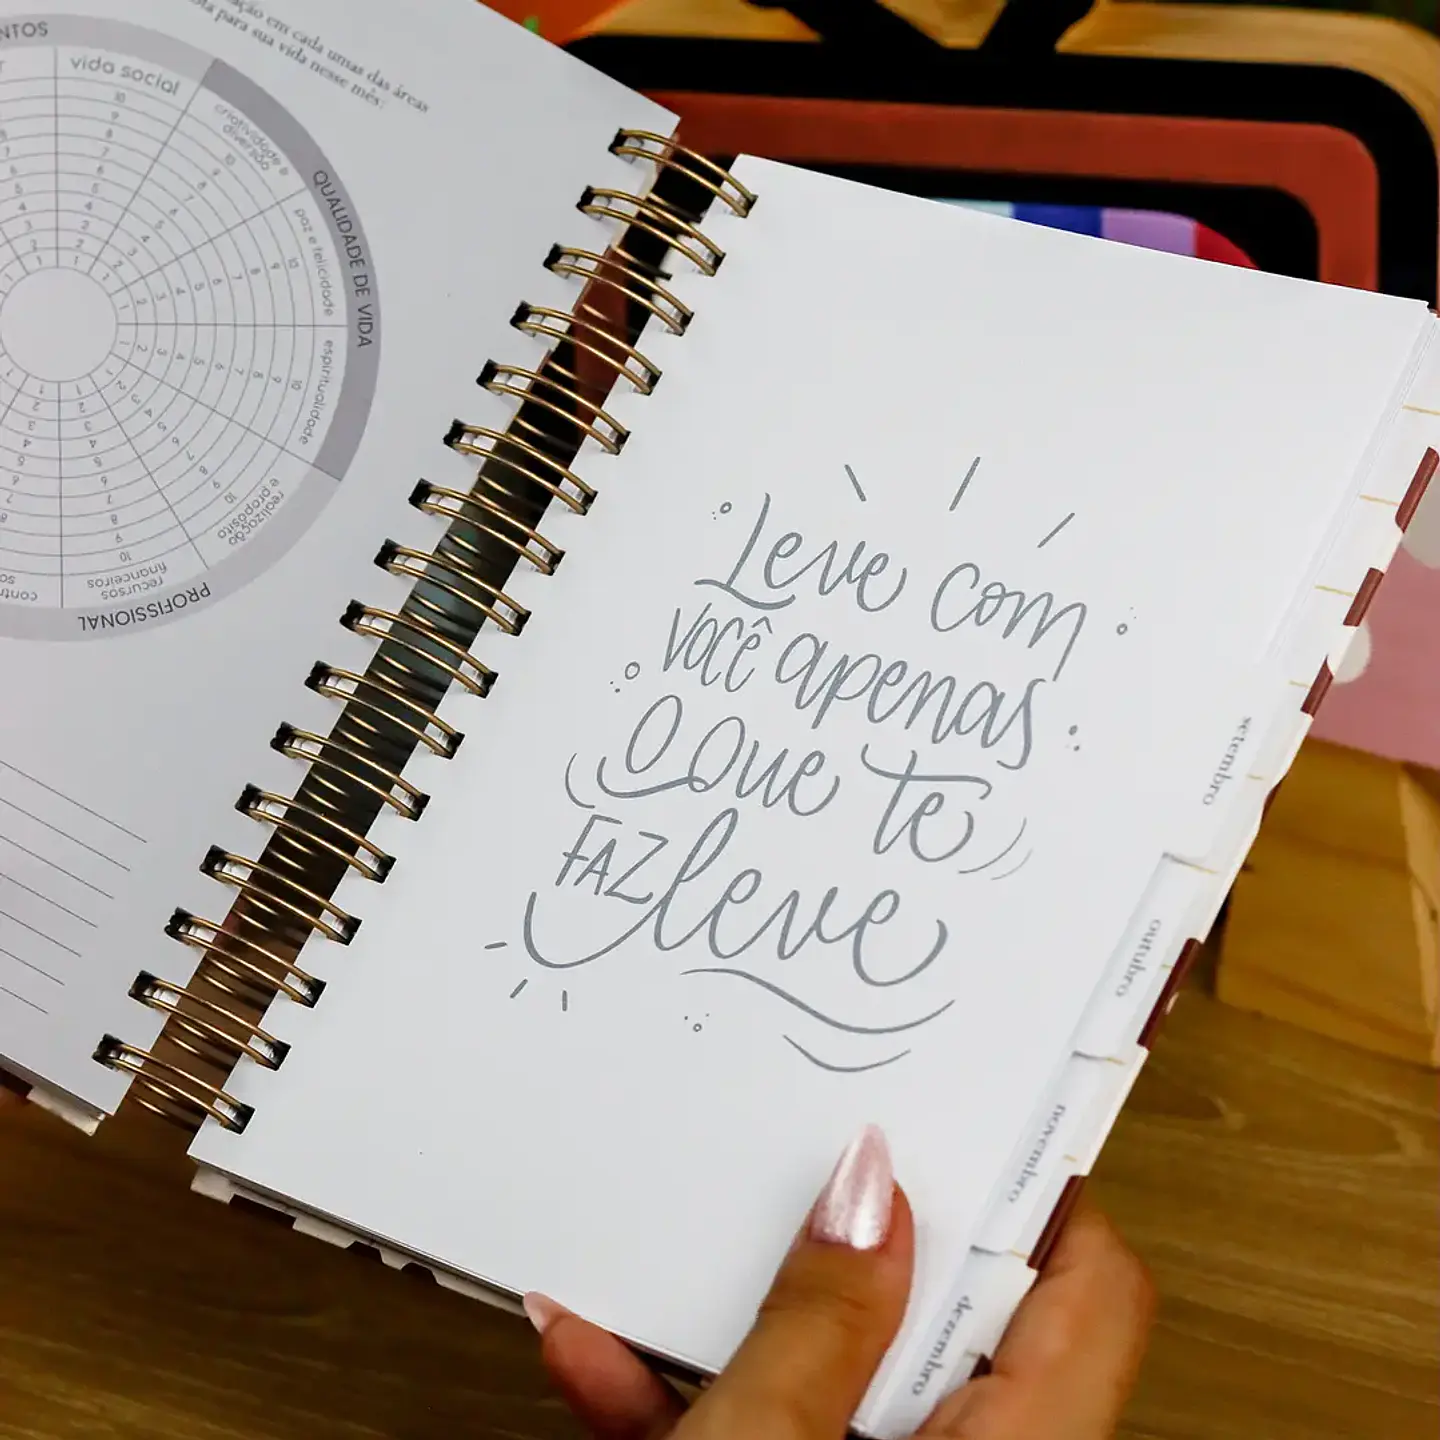 ação em cada umas das áreas
ota para sua vida nesse mês:
NTOS
vida social
criatividade e
diversão
QUALIDADE DE VIDA
paz e felicidade
espiritualidade
realização
e propósito
recursos
financeiros
PROFISSIONAL
Leve com
você apenas
o que te
FAZ leve
setembro
outubro
novembro
dezembro